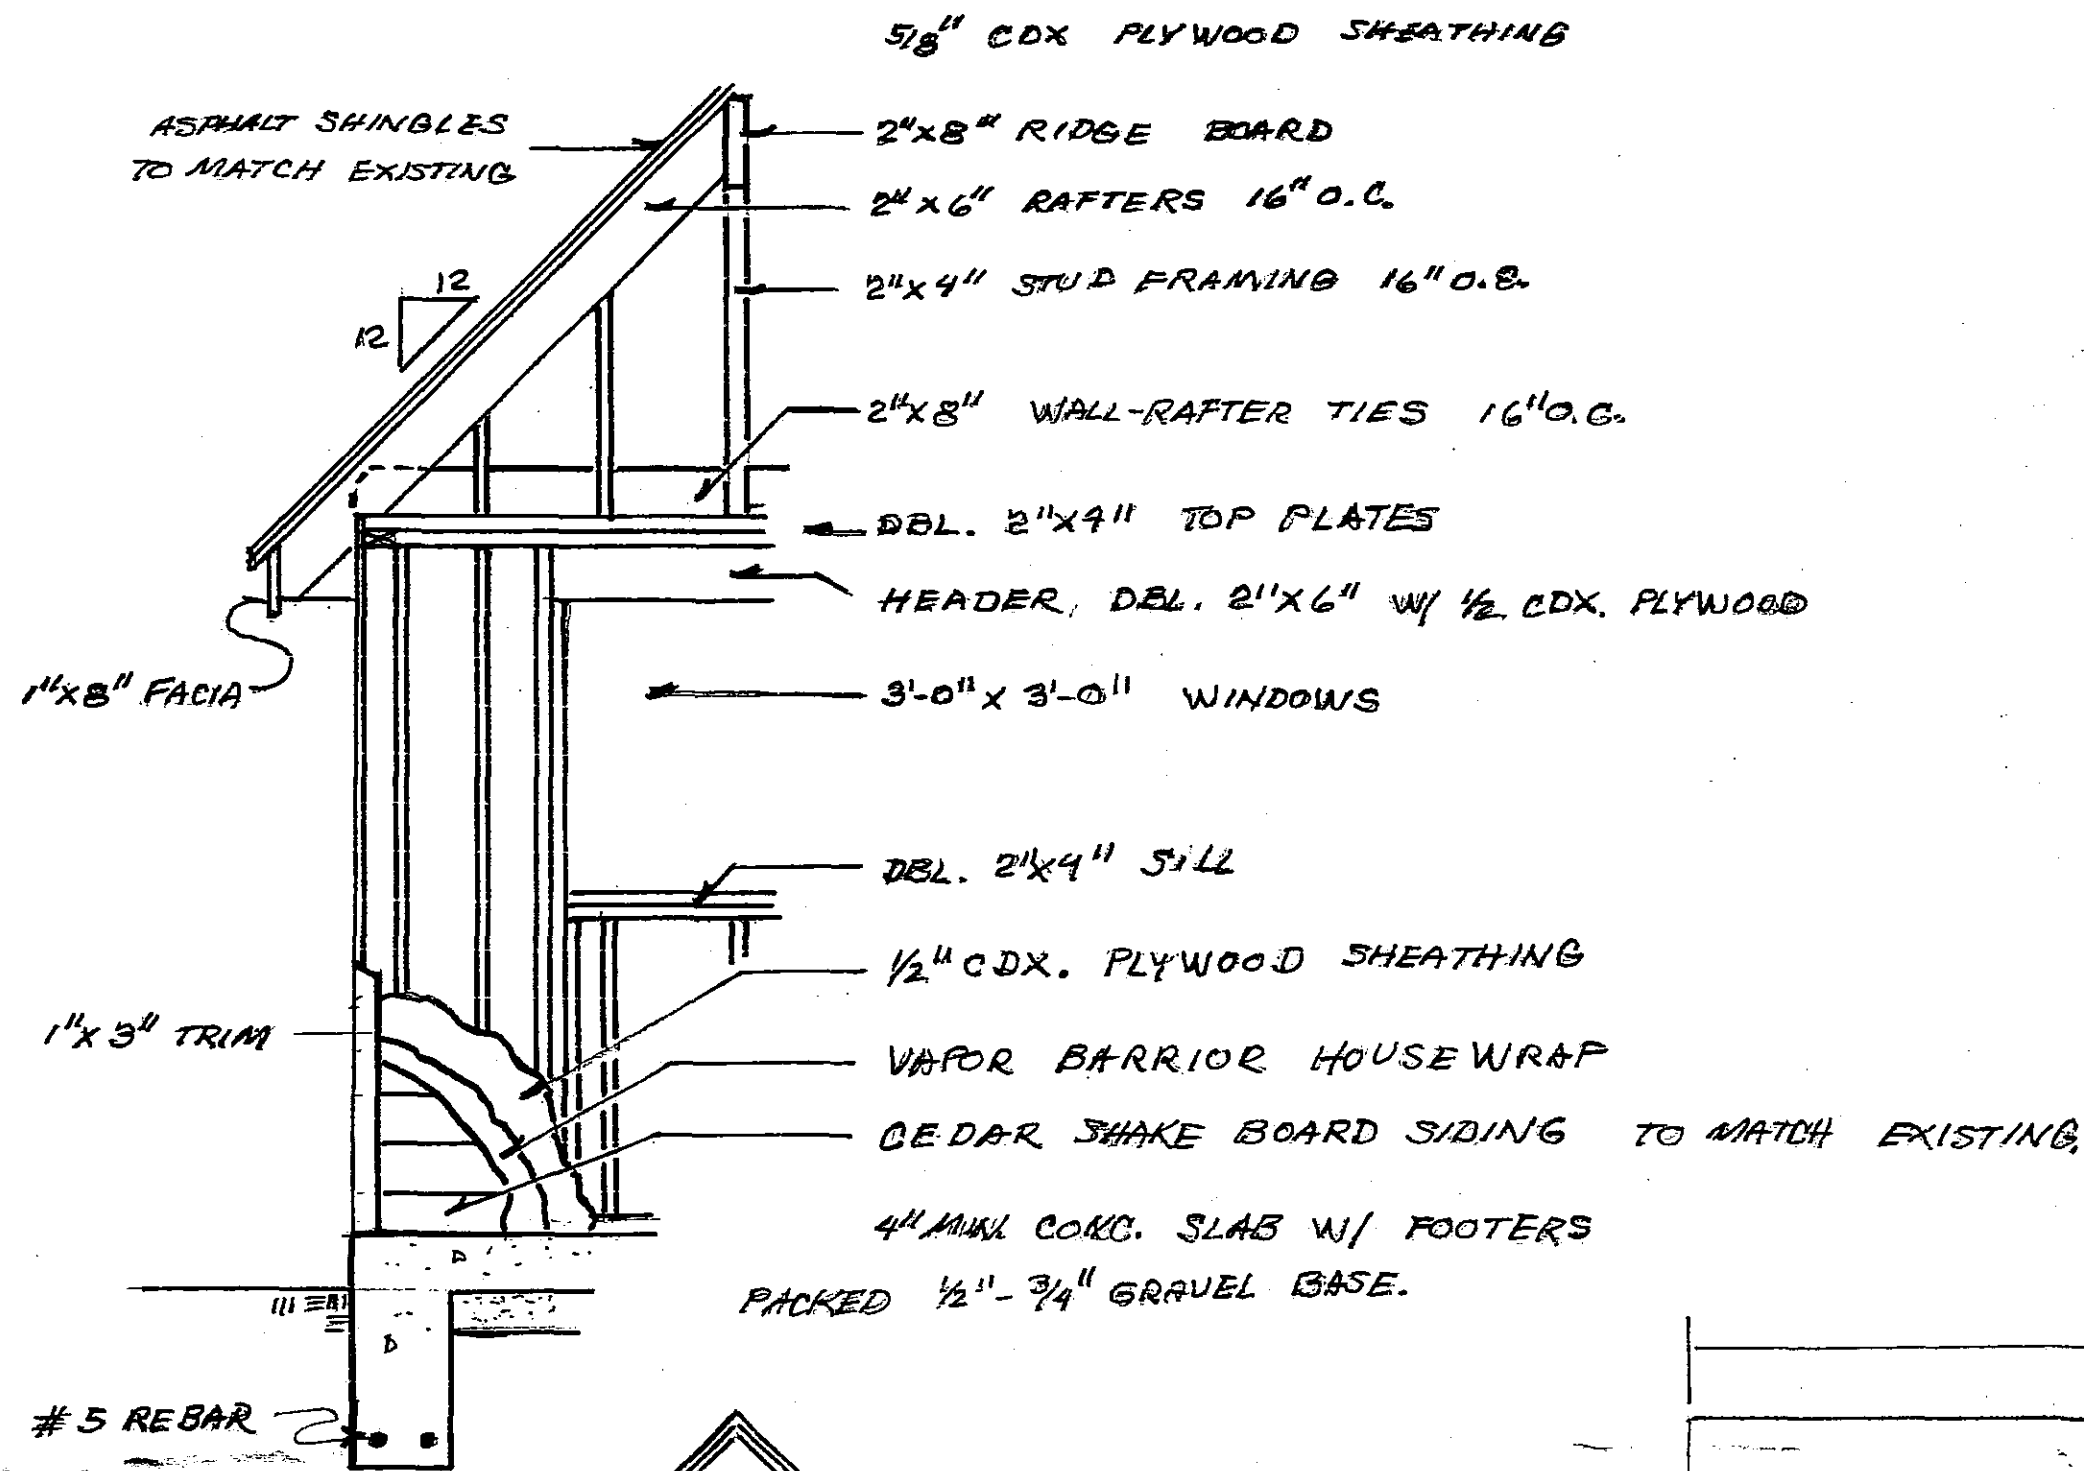 5/8" CDX PLYWOOD SHEATHING
ASPHALT SHINGLES
TO MATCH EXISTING
2"X8" RIDGE BOARD
2"X6" RAFTERS 16" O.C.
2"X4" STUD FRAMING 16" O.C.
12
12
2"X8" WALL-RAFTER TIES 16" O.C.
DBL. 2"X4" TOP PLATES
HEADER, DBL. 2"X6" W/ 1/2 CDX. PLYWOOD
1"X8" FACIA
3'-0" X 3'-0" WINDOWS
DBL. 2"X4" SILL
1/2" CDX. PLYWOOD SHEATHING
1"X3" TRIM
VAPOR BARRIOR HOUSEWRAP
CEDAR SHAKE BOARD SIDING TO MATCH EXISTING.
4" MIN. CONC. SLAB W/ FOOTERS
PACKED 1/2"-3/4" GRAVEL BASE.
#5 REBAR